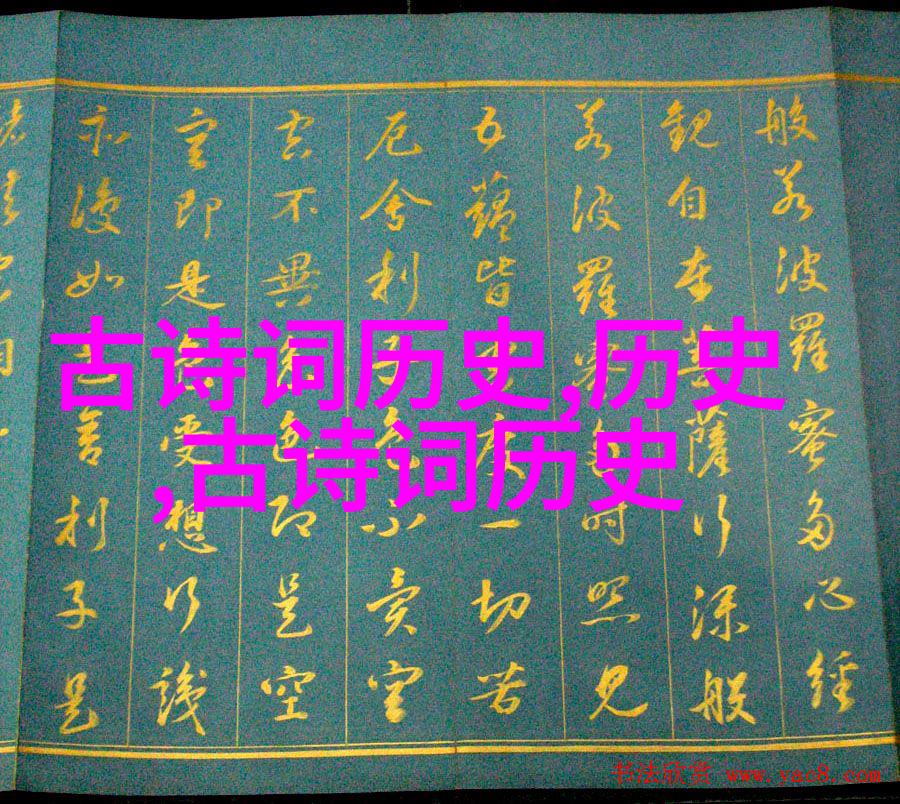 般若波羅蜜多心經
觀自在菩薩行深般
若波羅蜜多時照見
五蘊皆空度一切苦
厄舍利子色不異空
空不異色色即是空
空即是色受想行識
亦復如是舍利子是
古诗词历史,历史
,古诗词历史
书法欣赏 www.yac8.com